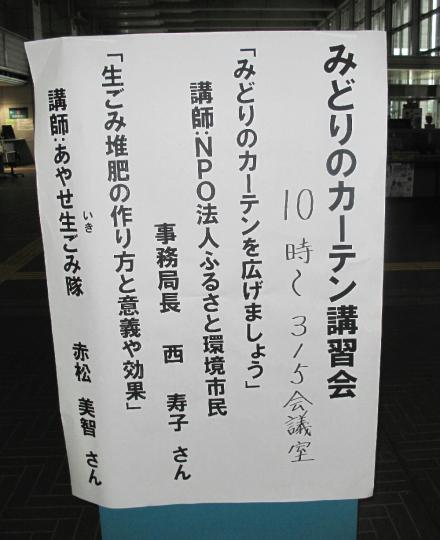 みどりのカーテン講習会
10時～315会議室
「みどりのカーテンを広げましょう」
講師:NPO法人ふるさと環境市民
事務局長 西 寿子 さん
「生ごみ堆肥の作り方と意義や効果」
いき
講師:あやせ生ごみ隊 赤松 美智 さん